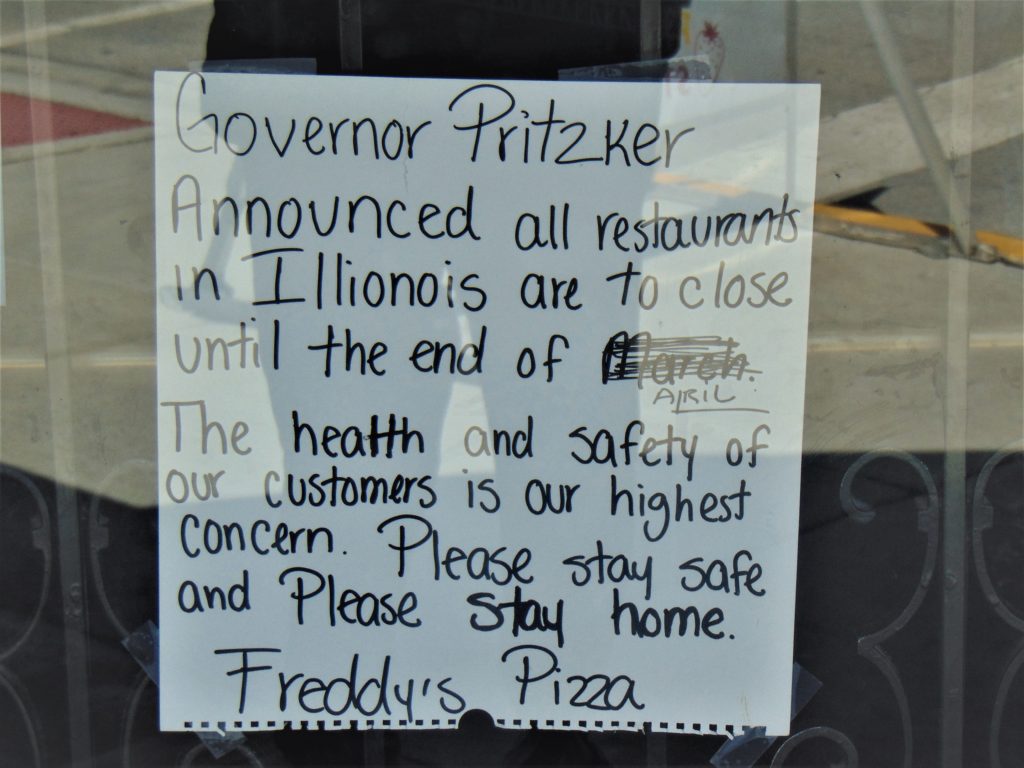 Governor Pritzker
Announced all restaurants
in Illionois are to close
until the end of March.
APRIL
The health and safety of
our customers is our highest
concern. Please stay safe
and Please stay home.
Freddy's Pizza